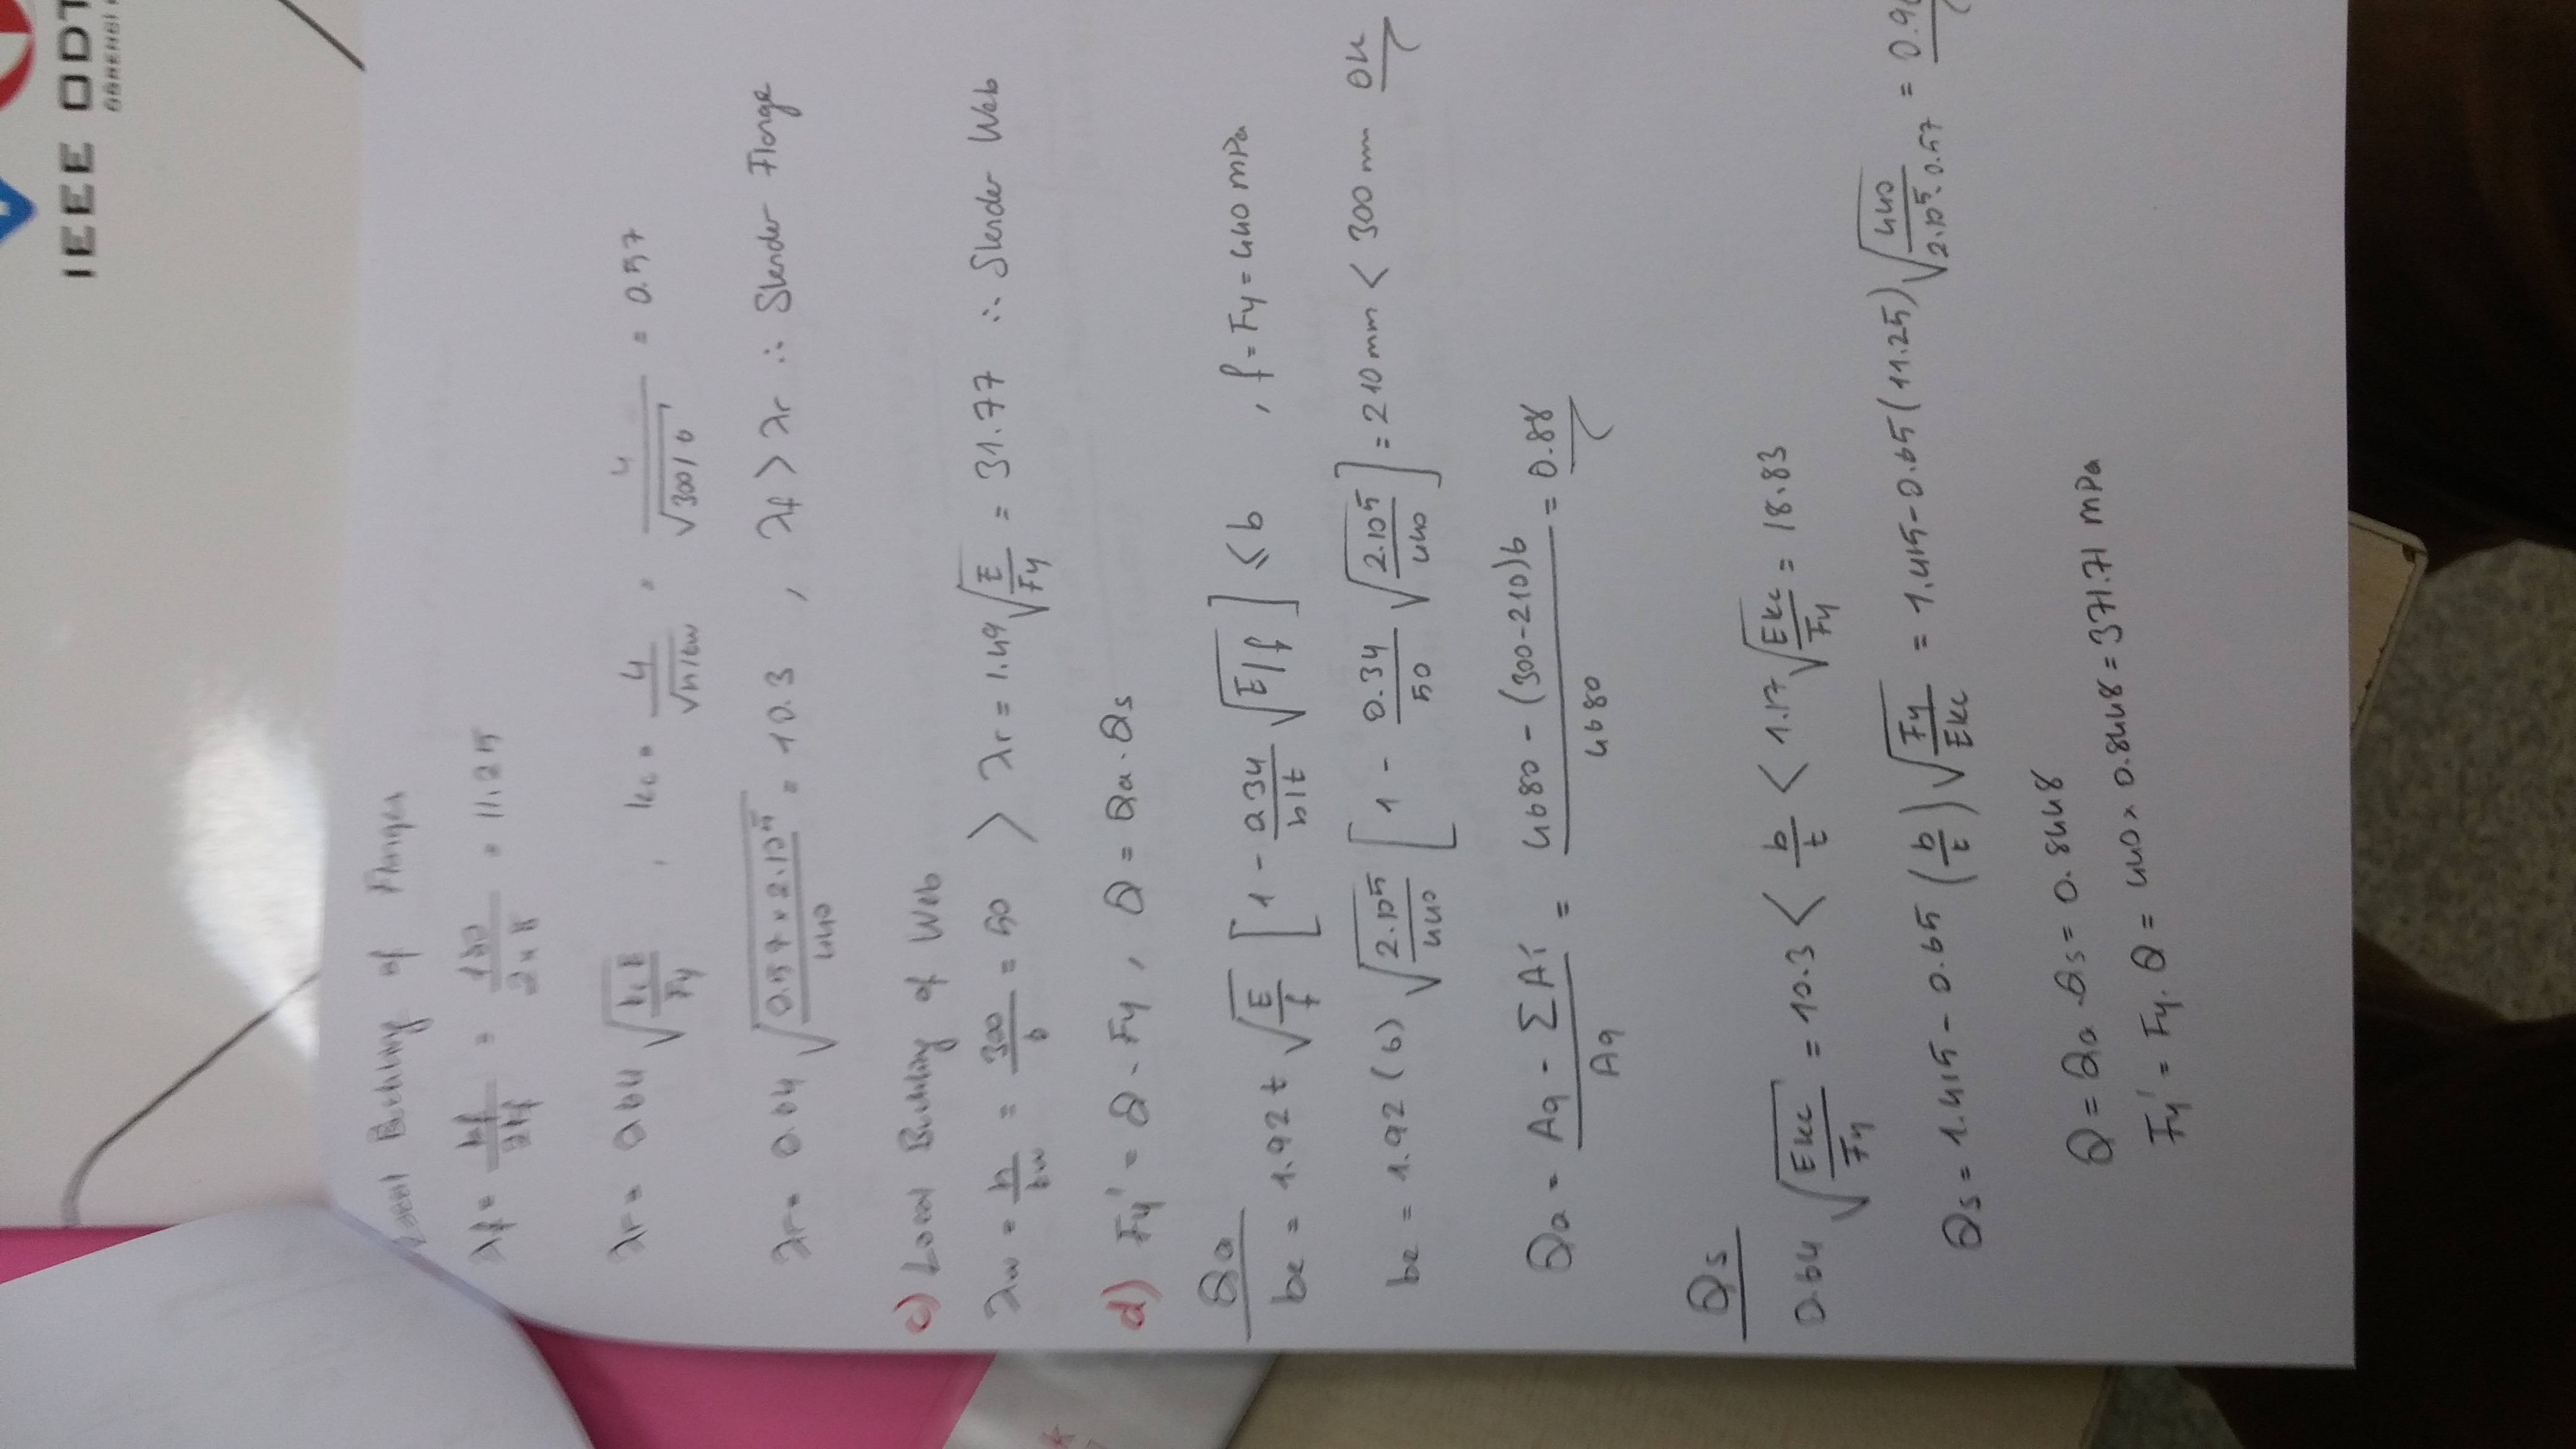 IEEE ODT
ÖĞRENCİ
Local Buckling of Flanges
λf = bf/2tf = 180/(2×8) = 11.25
λr = 0.64 √(kc E/Fy) , kc = 4/√(h/tw) = 4/√(300/6) = 0.57
λr = 0.64 √(0.57×2.10⁵/440) = 10.3 , λf > λr ∴ Slender Flange
c) Local Buckling of Web
λw = h/tw = 300/6 = 50 > λr = 1.49 √(E/Fy) = 31.77 ∴ Slender Web
d) Fy' = Q . Fy , Q = Qa . Qs
Qa
be = 1.92 t √(E/f) [1 - 0.34/(b/t) √(E/f)] ≤ b , f = Fy = 440 mPa
be = 1.92 (6) √(2.10⁵/440) [1 - 0.34/50 √(2.10⁵/440)] = 210 mm < 300 mm OK
Qa = (Ag - ΣAi)/Ag = (4680 - (300-210)6)/4680 = 0.88
Qs
0.64 √(Ekc/Fy) = 10.3 < b/t < 1.17 √(Ekc/Fy) = 18.83
Qs = 1.415 - 0.65 (b/t) √(Fy/Ekc) = 1.415 - 0.65 (11.25) √(440/(2.10⁵.0.57)) = 0.9
Q = Qa . Qs = 0.8448
Fy' = Fy . Q = 440 × 0.8448 = 371.71 mPa